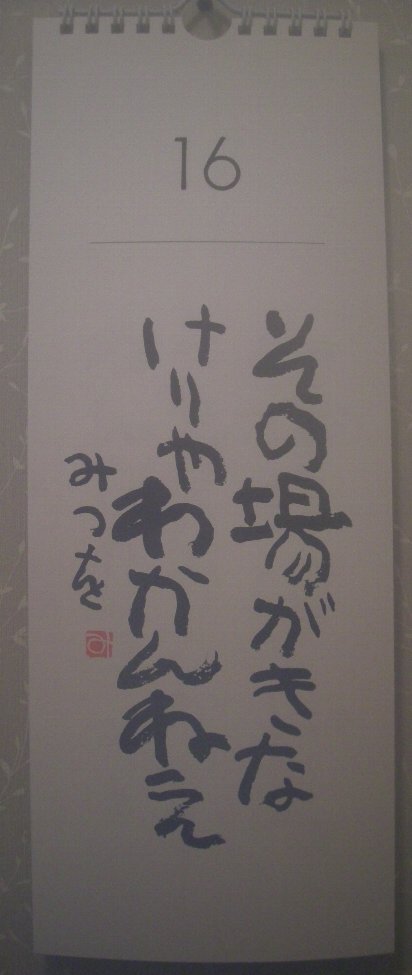 16
その場がきな
けりゃわかんねえ
みつを
み